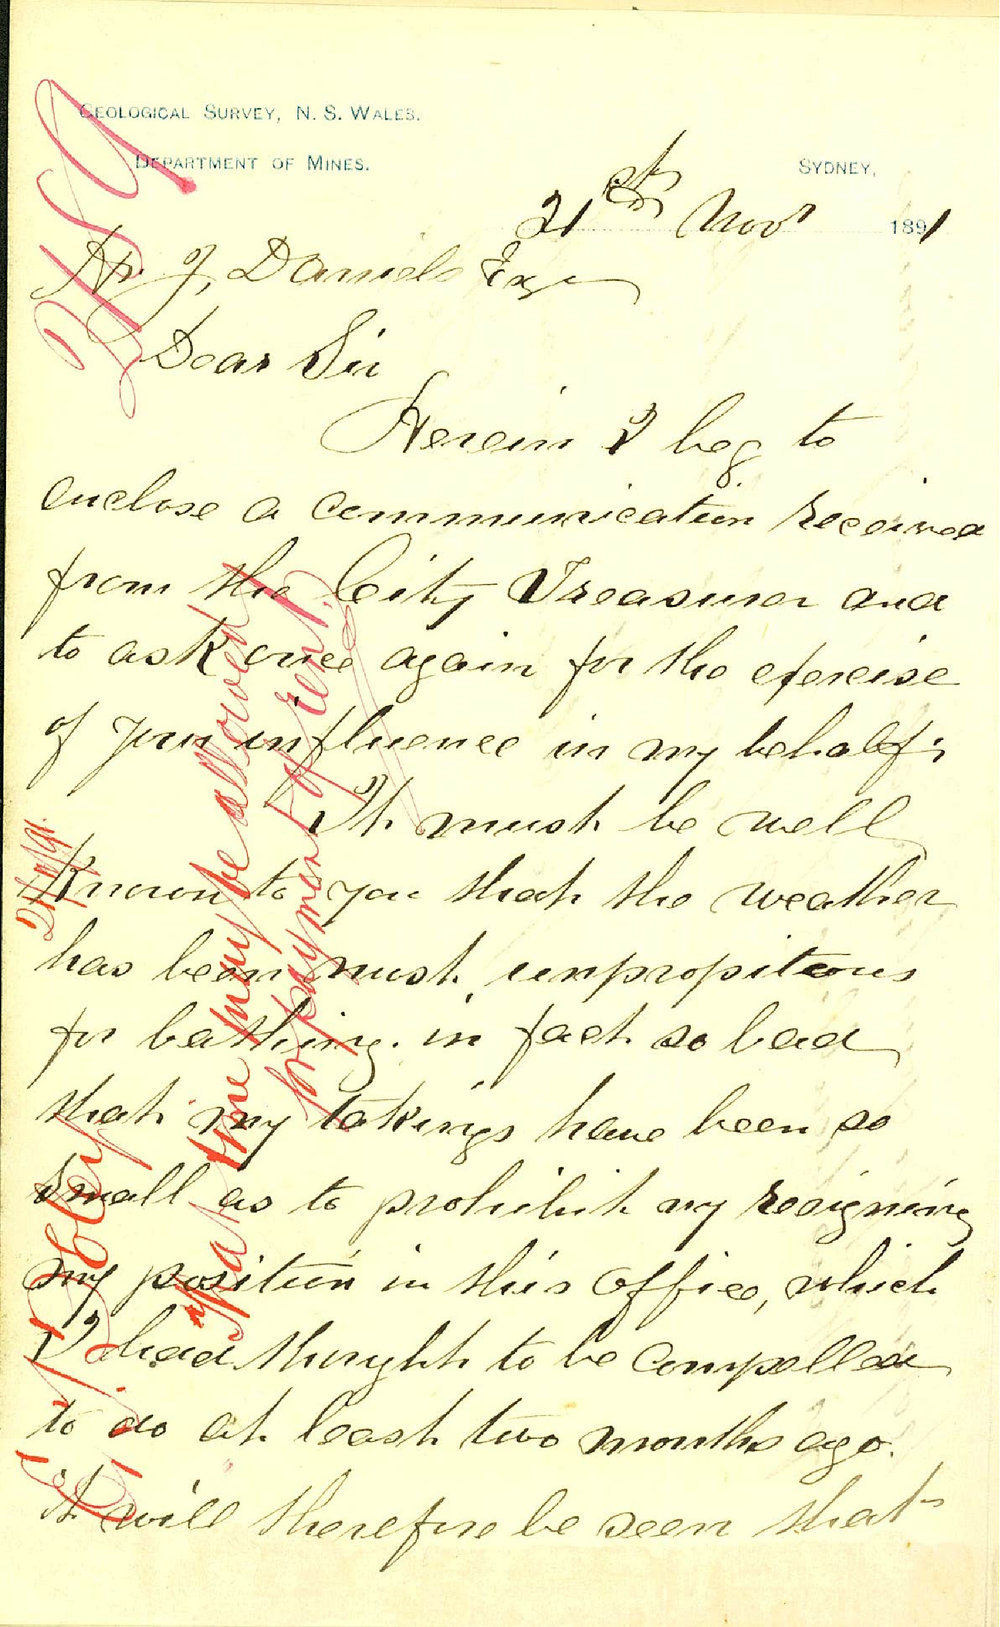 GEOLOGICAL SURVEY, N. S. WALES.
DEPARTMENT OF MINES.
SYDNEY,
21st Novr 1891
H. J. Daniels Esqe
Dear Sir
Herein I beg to
enclose a communication received
from the City Treasurer and
to ask once again for the exercise
of your influence in my behalf;
It must be well
known to you that the weather
has been most unpropiteous
for bathing. in fact so bad
that my takings have been so
small as to prohibit my resigning
my position in this office, which
I had thought to be compelled
to do at least two months ago.
It will therefore be seen that
that time may be allowed
for payment of rent.